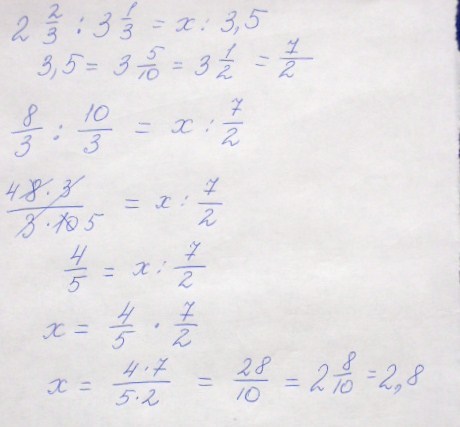 2 2/3 : 3 1/3 = x : 3,5
3,5 = 3 5/10 = 3 1/2 = 7/2
8/3 : 10/3 = x : 7/2
4 8 · 3 / 3 · 10 5 = x : 7/2
4/5 = x : 7/2
x = 4/5 · 7/2
x = 4·7/5·2 = 28/10 = 2 8/10 = 2,8